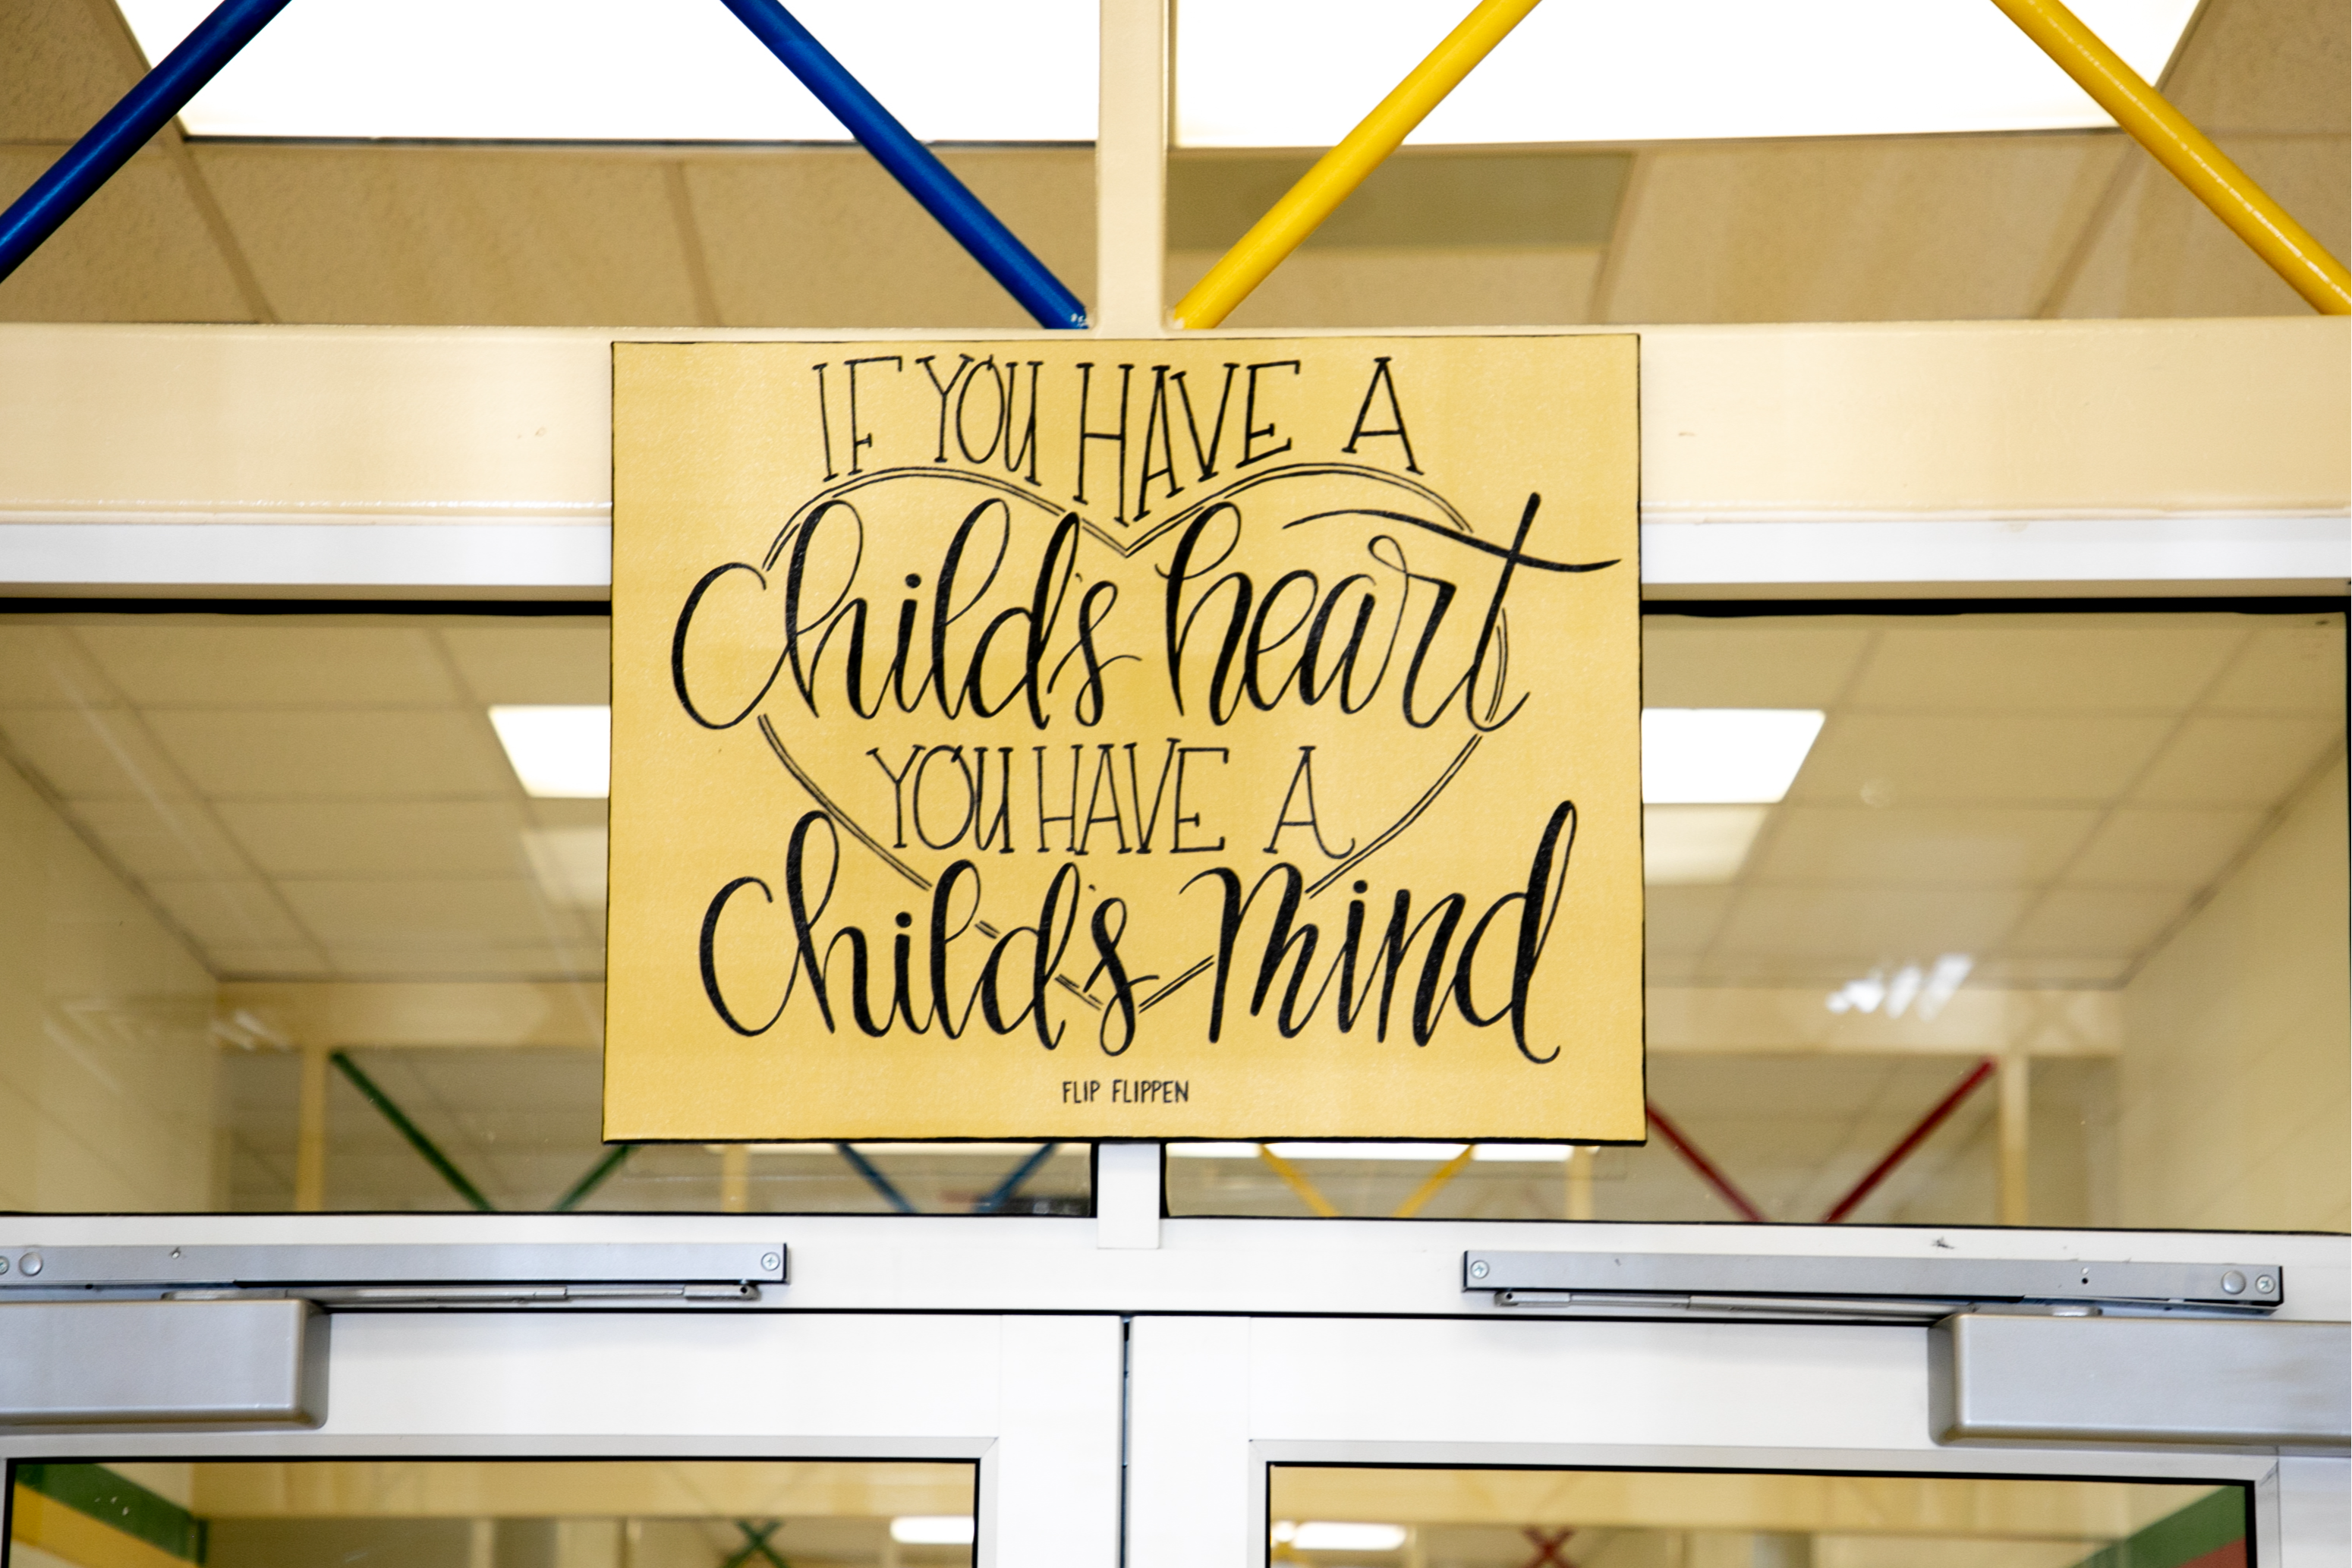 IF YOU HAVE A
Child's heart
YOU HAVE A
Child's mind
FLIP FLIPPEN